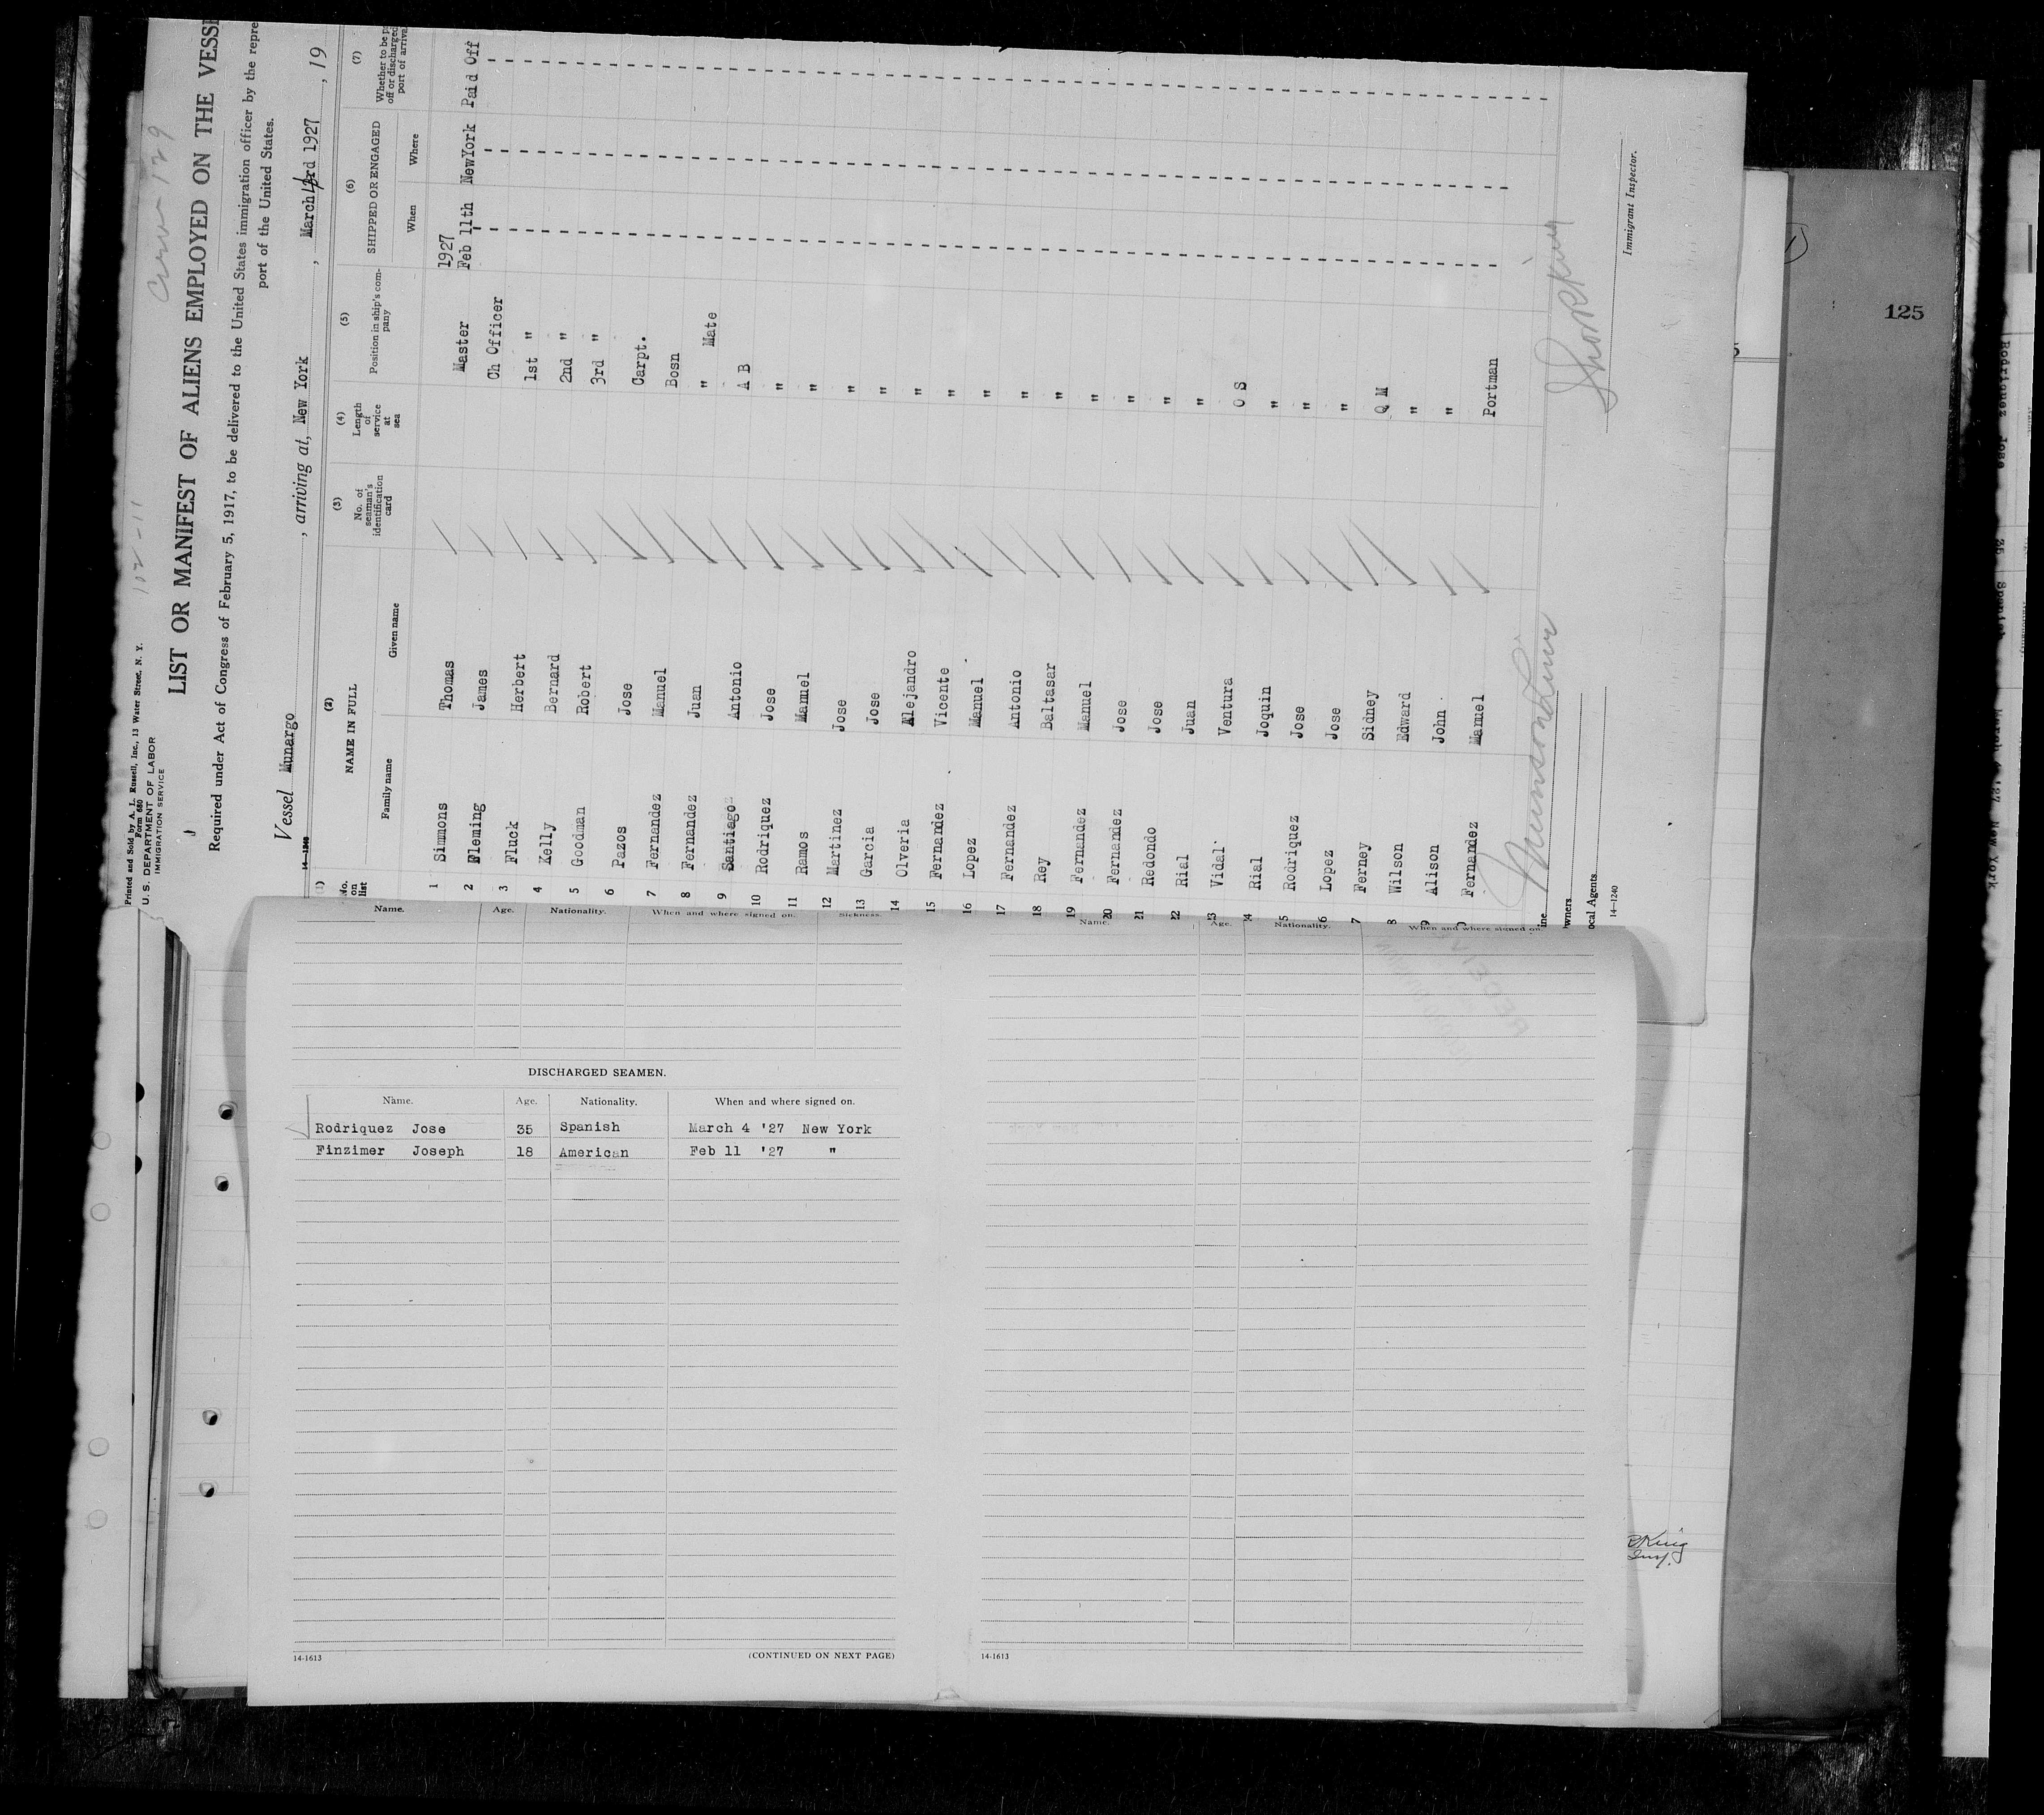 Printed and Sold by A. L. Russell, Inc., 13 Water Street, N. Y.
Form 680
U. S. DEPARTMENT OF LABOR
IMMIGRATION SERVICE
102-11
129
LIST OR MANIFEST OF ALIENS EMPLOYED ON THE VESSE
Required under Act of Congress of February 5, 1917, to be delivered to the United States immigration officer by the repre
port of the United States.
Vessel Munargo , arriving at, New York , March rd 1927 , 19
(2) (3) (4) (5) (6) (7)
No. on list NAME IN FULL No. of seaman's identification card Length of service at sea Position in ship's company SHIPPED OR ENGAGED Whether to be p off or discharged port of arrival
Family name Given name When Where
1927
1 Simmons Thomas Master Feb 11th NewYork Paid Off
2 Fleming James Ch Officer
3 Fluck Herbert 1st "
4 Kelly Bernard 2nd "
5 Goodman Robert 3rd "
6 Pazos Jose Carpt.
7 Fernandez Manuel Bosn
8 Fernandez Juan " Mate
9 Santiago Antonio A B
10 Rodriquez Jose "
11 Ramos Manuel "
12 Martinez Jose "
13 Garcia Jose "
14 Olveria Alejandro "
15 Fernandez Vicente "
16 Lopez Manuel "
17 Fernandez Antonio "
18 Rey Baltasar "
19 Fernandez Manuel "
20 Fernandez Jose "
21 Redondo Jose "
22 Rial Juan "
23 Vidal Ventura O S
24 Rial Joquin "
5 Rodriquez Jose "
6 Lopez Jose "
7 Ferney Sidney Q M
8 Wilson Edward "
9 Alison John "
0 Fernandez Manuel Portman
Munson Line
ine
wners
ocal Agents
14—1240
Immigrant Inspector.
125
Name. Age. Nationality. When and where signed on. Sickness.
Name. Age. Nationality. When and where signed on.
DISCHARGED SEAMEN.
Name. Age. Nationality. When and where signed on.
Rodriquez Jose 35 Spanish March 4 '27 New York
Finzimer Joseph 18 American Feb 11 '27 "
14-1613 (CONTINUED ON NEXT PAGE)
14-1613
King
Insp.
Rodriquez Jose 35 Spanish March 4 '27 New York